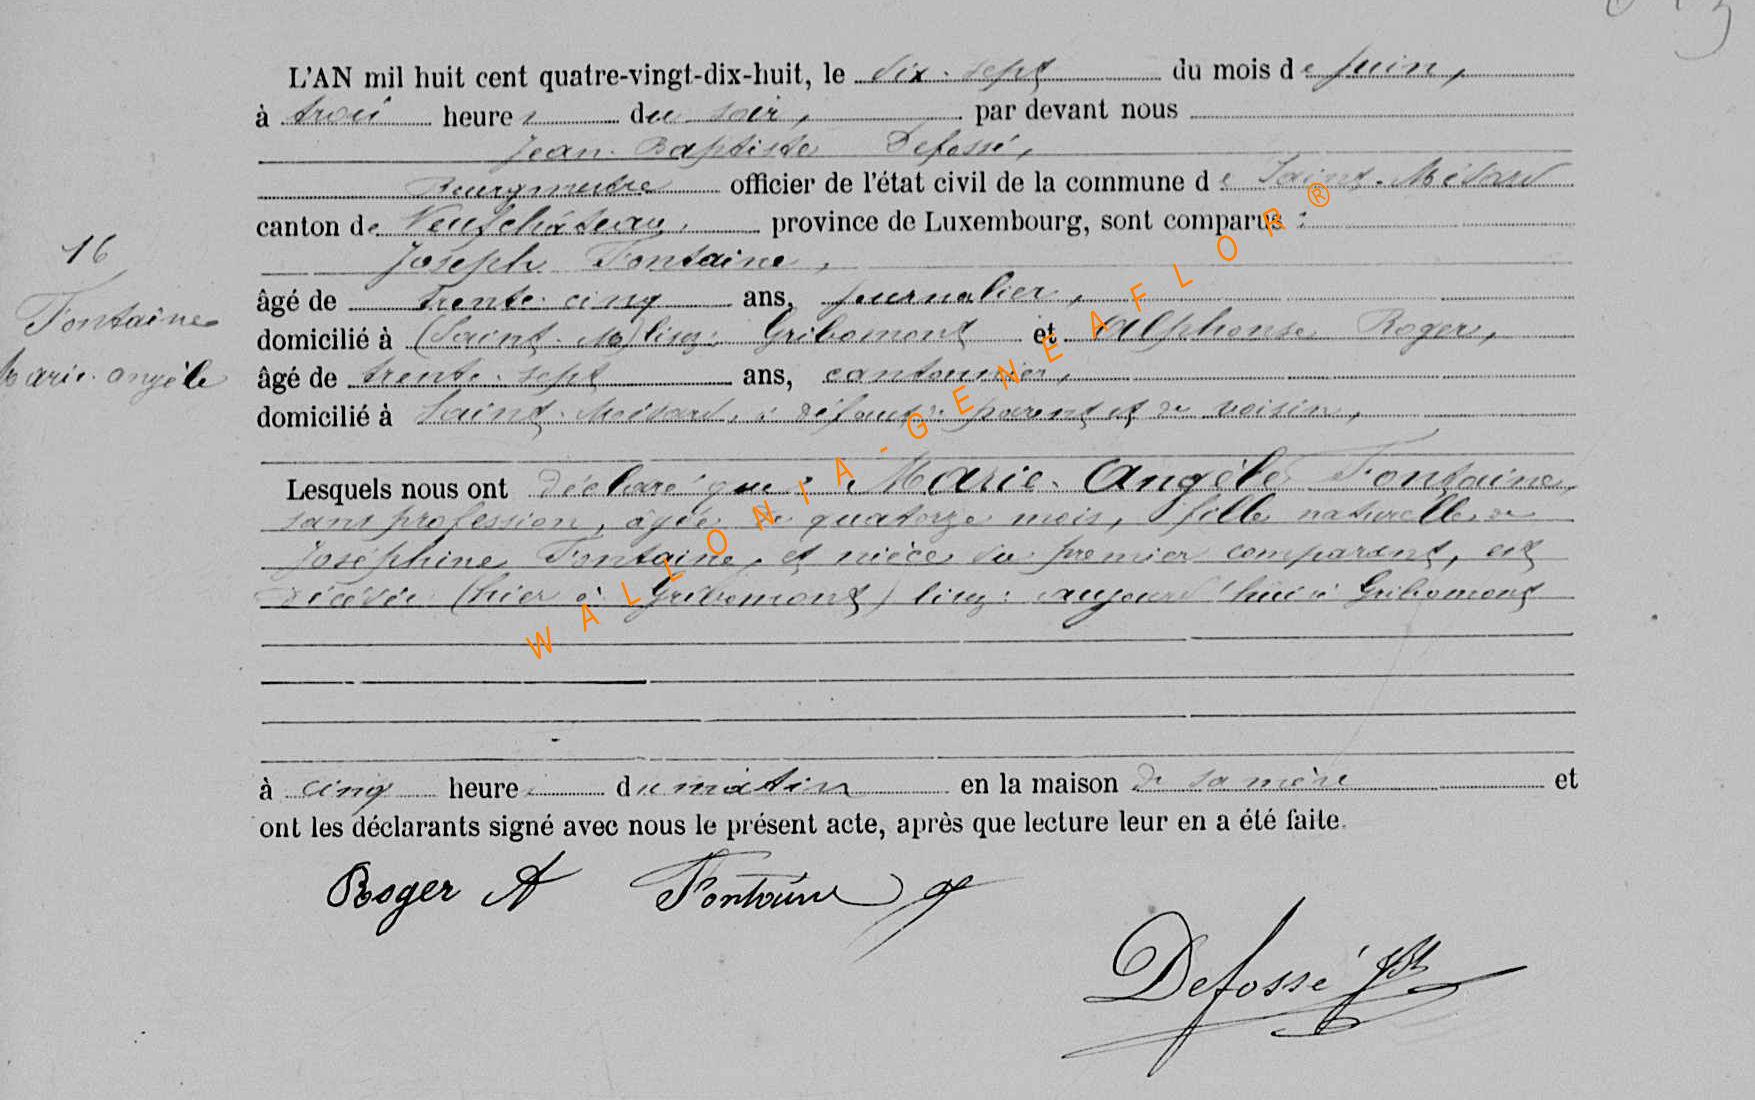 L'AN mil huit cent quatre-vingt-dix-huit, le dix-sept du mois de juin,
à trois heures du soir, par devant nous
Jean-Baptiste Defossé,
Bourgmestre officier de l'état civil de la commune de Saint-Médard
canton de Neufchâteau, province de Luxembourg, sont comparus :
16
Joseph Fontaine,
âgé de trente-cinq ans, journalier,
Fontaine
domicilié à (Saint-Mé) lisez: Gribomont et Alphonse Roger,
Marie-Angèle
âgé de trente-sept ans, cantonnier,
domicilié à Saint-Médard, à défaut de parent et de voisin,
Lesquels nous ont déclaré que : Marie-Angèle Fontaine,
sans profession, âgée de quatorze mois, fille naturelle de
Joséphine Fontaine, et nièce du premier comparant, est
décédée (hier à Gribomont) lisez: aujourd'hui à Gribomont
à cinq heures du matin en la maison de sa mère et
ont les déclarants signé avec nous le présent acte, après que lecture leur en a été faite.
Roger A Fontaine J
Defossé JB
WALLONIA-GENEAFLOR®